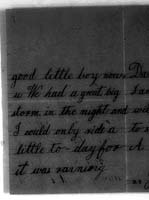 good little boy now Da
u We had a great big San
storm in the night and we
I would only ride a to s
little to-day for A
it was raining